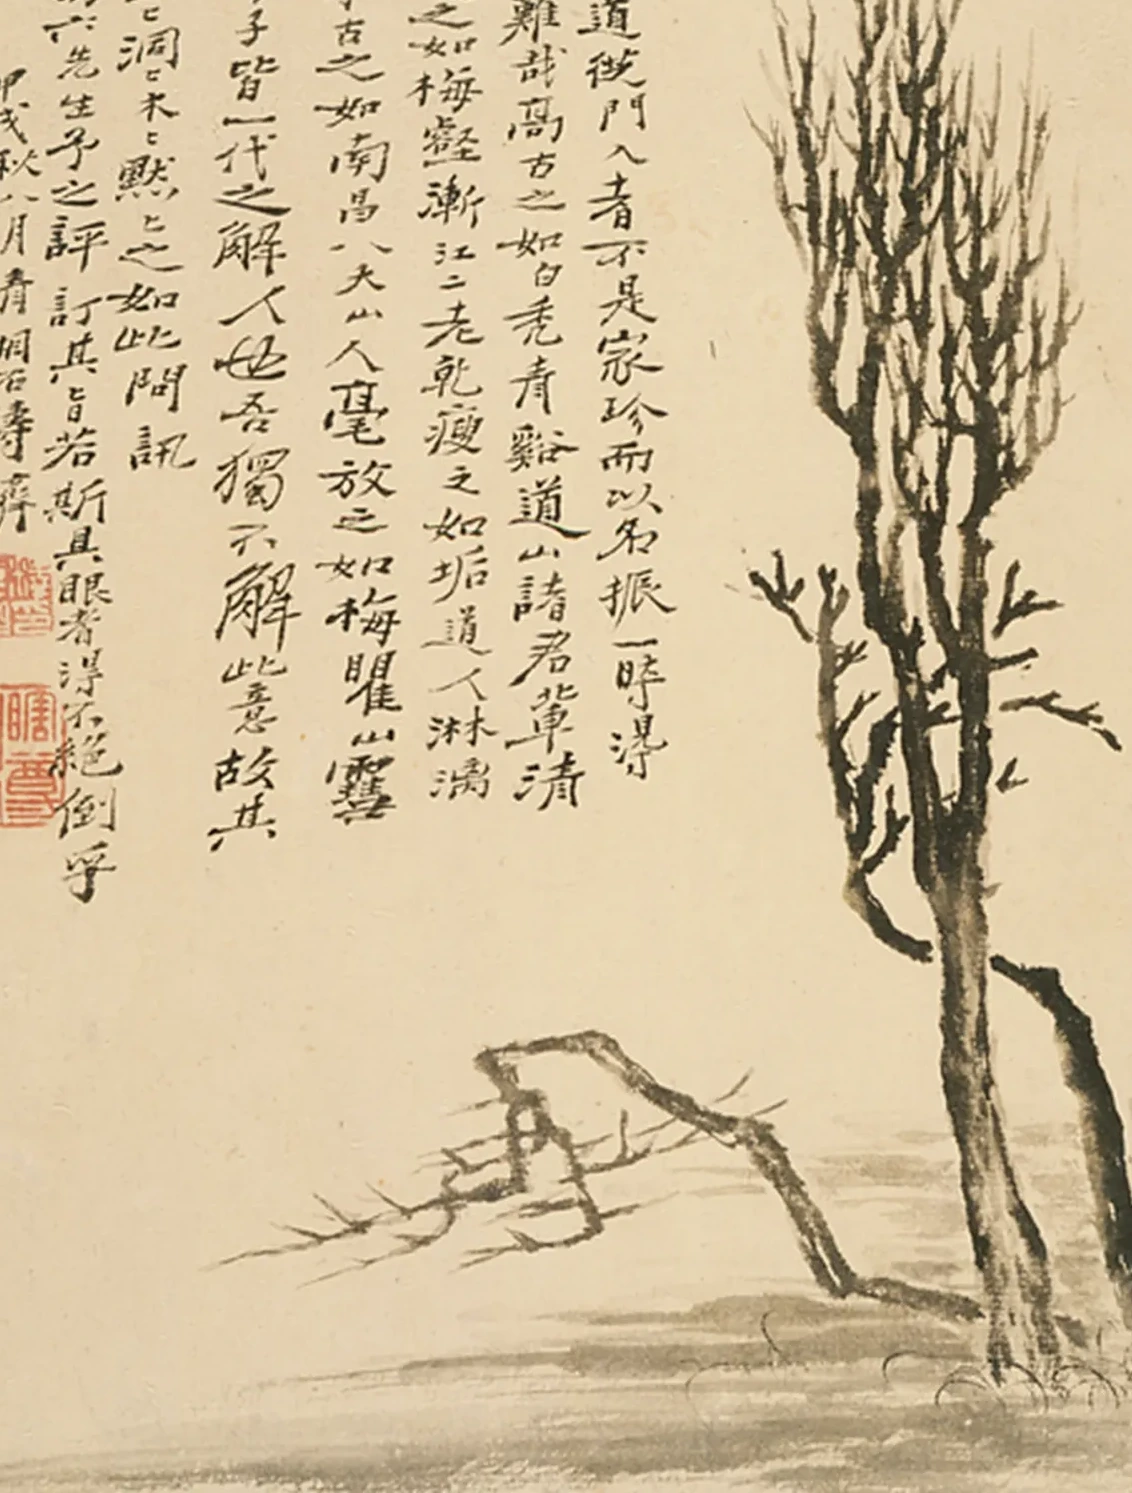 道從門入者不是家珍而以名振一時得
難哉高古之如白禿青谿道山諸君輩清
之如梅壑漸江二老乾瘦之如垢道人淋漓
古之如南昌八大山人豪放之如梅瞿山雪
子皆一代之解人也吾獨不解此意故其
〻洞〻木〻默〻之如此問訊
六先生予之評訂其旨若斯具眼者得不絕倒乎
甲戌秋八月清湘石濤濟
瞎尊